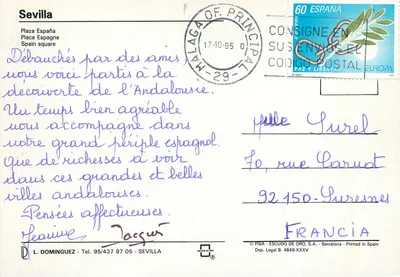 Sevilla
Plaza España
Place Espagne
Spain square
Débauchés par des amis
nous voici partis à la
découverte de l'Andalousie.
Un temps bien agréable
nous accompagne dans
notre grand périple espagnol.
Que de richesses à voir
dans ces grandes et belles
villes andalouses.
Pensées affectueuses.
Jeanine Jacques
L. DOMINGUEZ - Tel. 95/437 97 05 - SEVILLA
MALAGA OF. PRINCIPAL
17-10-95
-29-
CONSIGNE EN
SUS ENVIOS EL
CODIGO POSTAL
60 ESPAÑA
PAZ Y LIBERTAD EUROPA
Melle Surel
70, rue Carnot
92150-Suresnes
FRANCIA
© FISA - ESCUDO DE ORO, S.A. - Printed in Spain
Dep. Legal B. 4848-XXXV